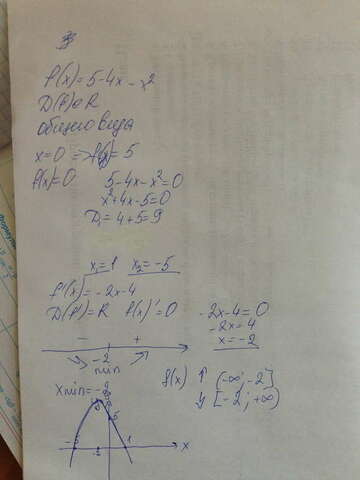 f(x) = 5-4x-x²
D(f)∈R
общего вида
x=0 => f(x)=5
f(x)=0 5-4x-x²=0
x²+4x-5=0
D₁=4+5=9
x₁=1 x₂=-5
f'(x)=-2x-4
D(f')=R f(x)'=0 -2x-4=0
-2x=4
x=-2
- +
-2
min
xmin=-2
f(x) ↑ (-∞;-2]
↓ [-2;+∞)
5
-5 1 x